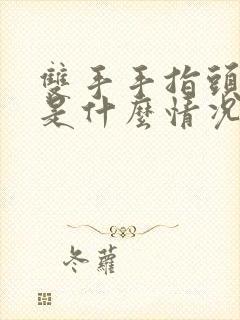 雙手手指頭
是什麼情況
冬蘿